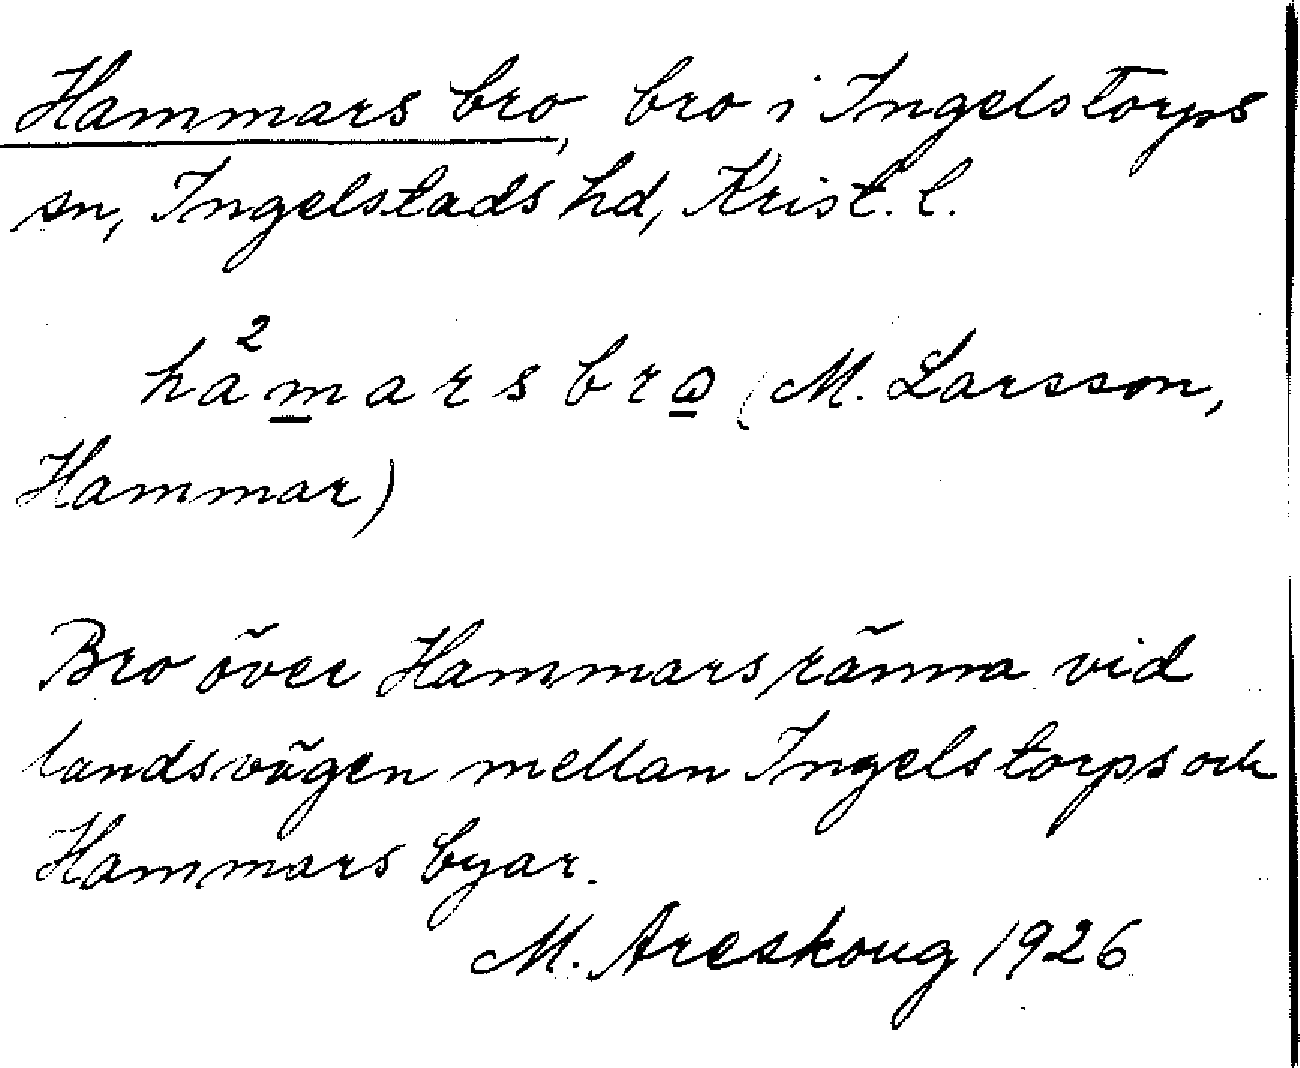 Hammars bro, bro i Ingelstorps
sn, Ingelstads hd, Krist. l.
ha²marsbro (M. Larsson,
Hammar)
Bro över Hammars ränna vid
landsvägen mellan Ingelstorps och
Hammars byar.
M. Areskoug 1926